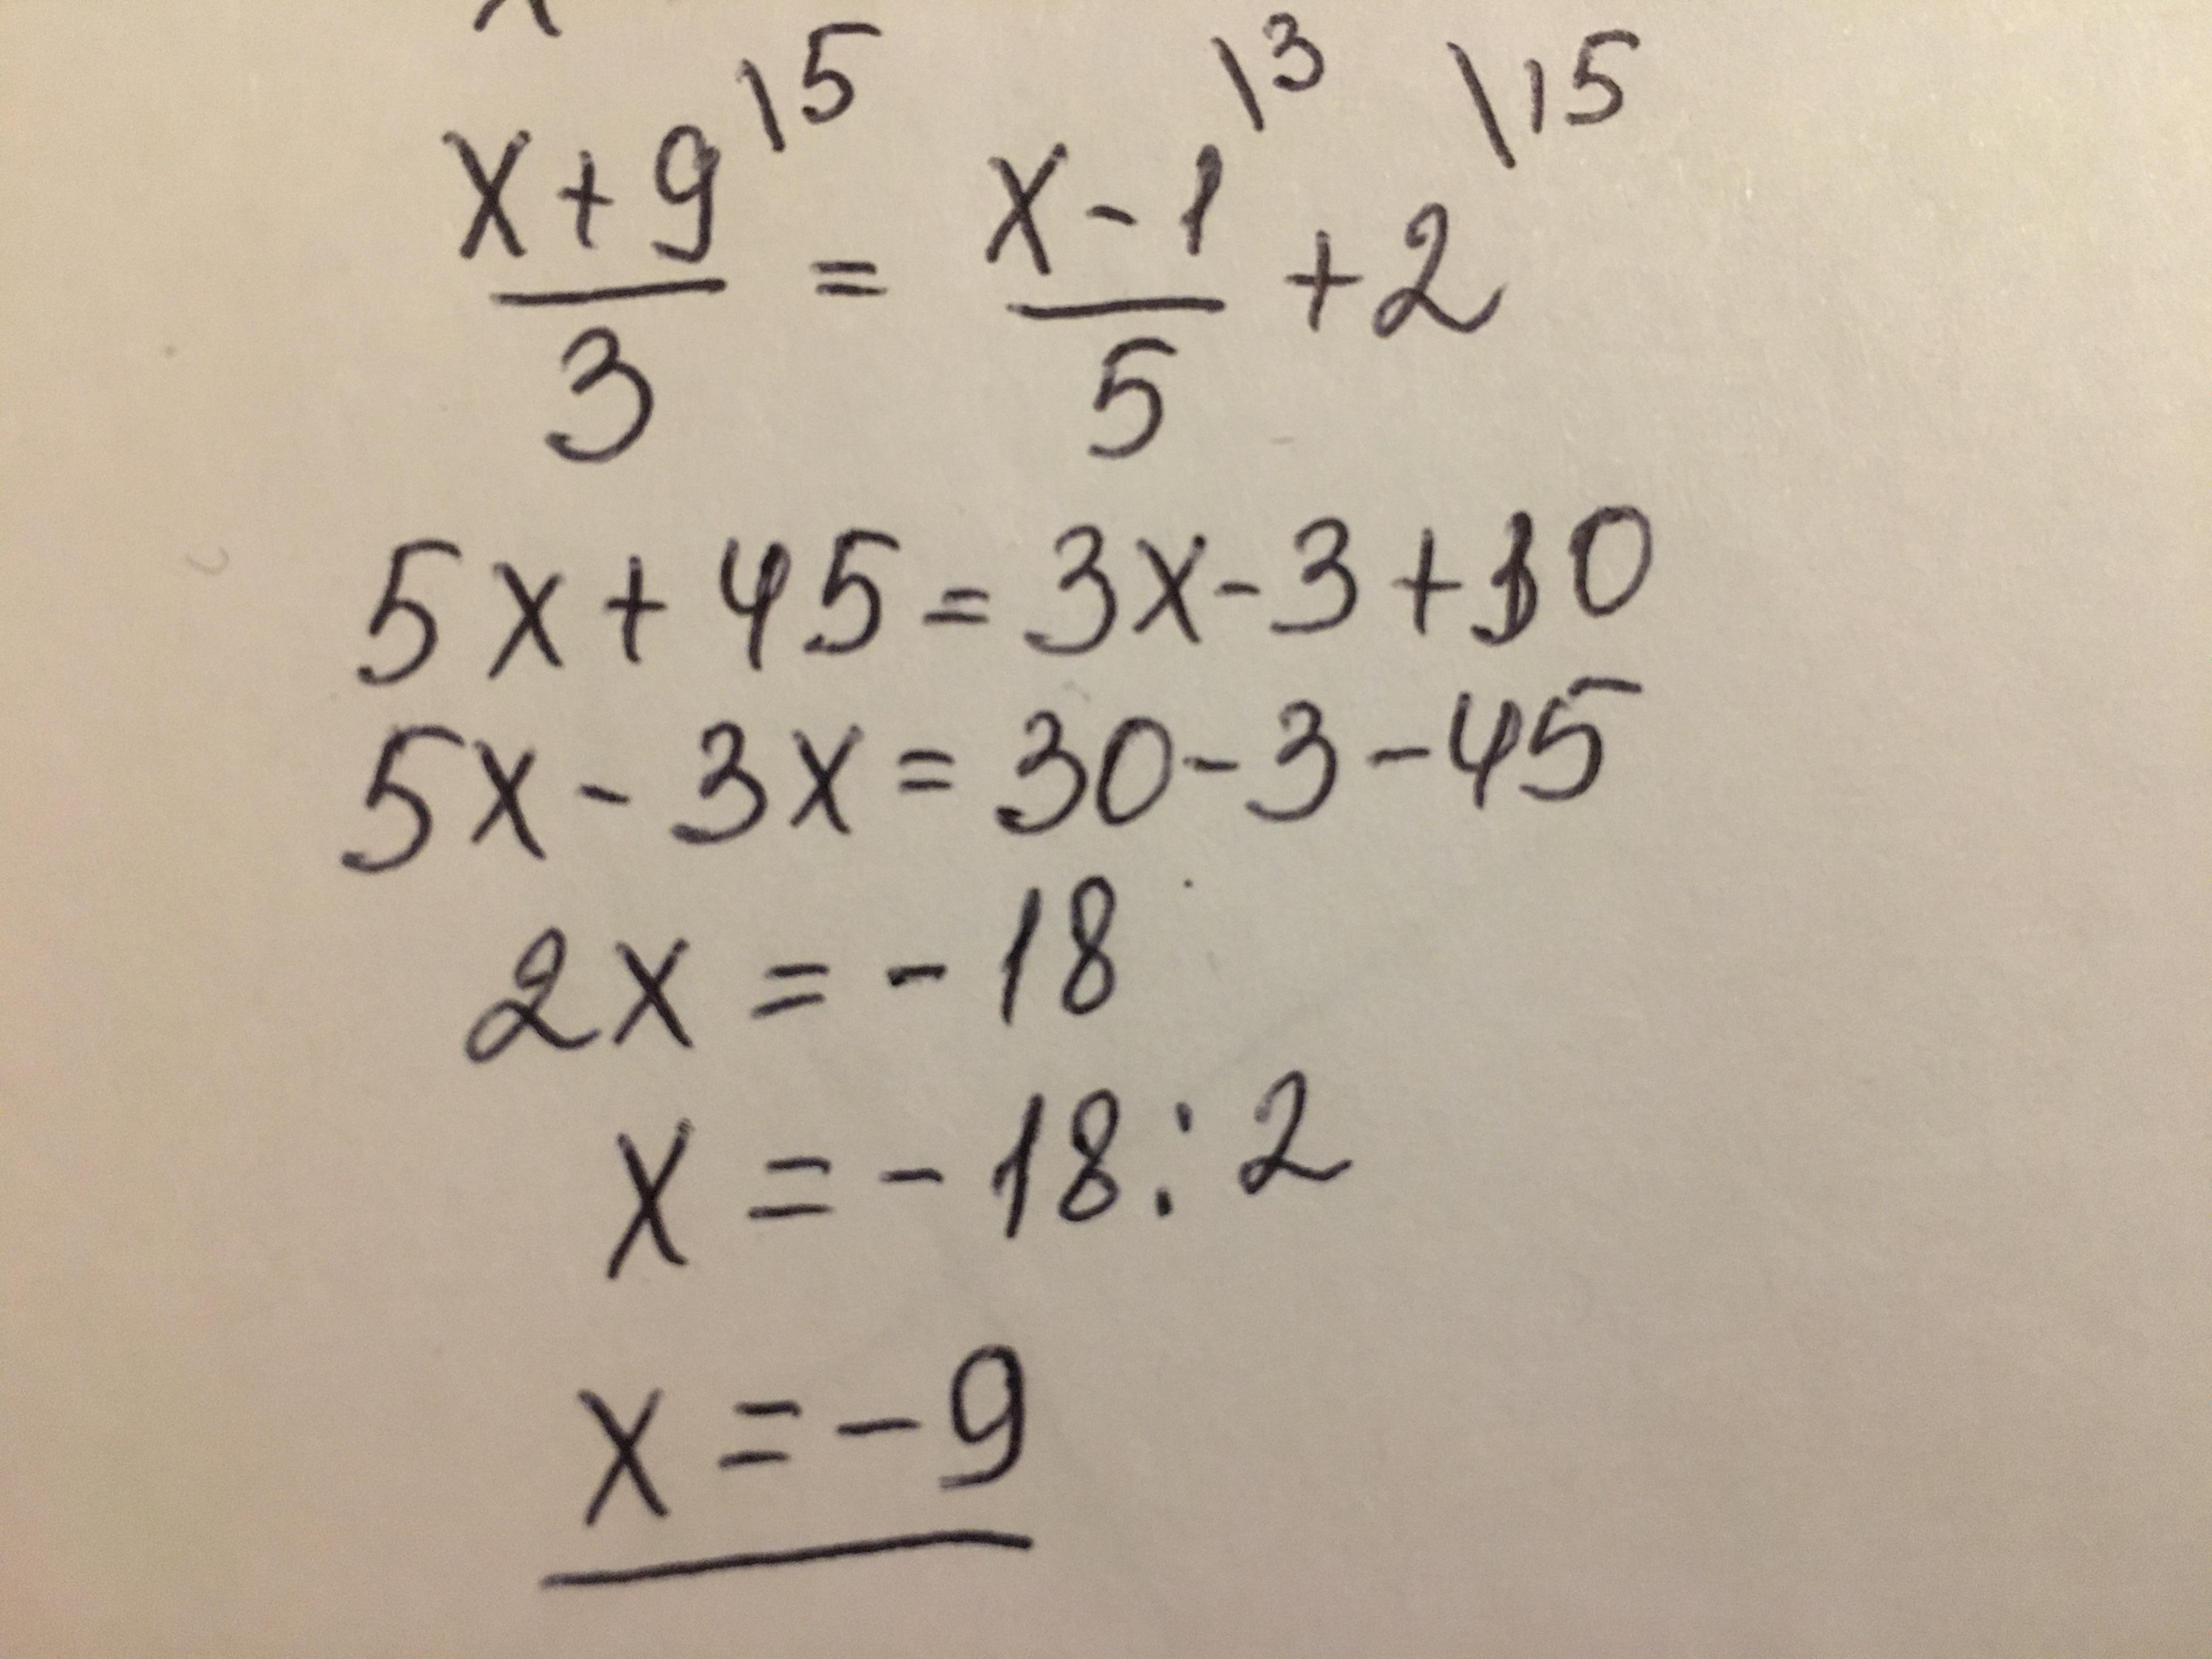 x+9\5 / 3 = x-1\3 / 5 + 2\15
5x+45=3x-3+30
5x-3x=30-3-45
2x=-18
x=-18:2
x=-9